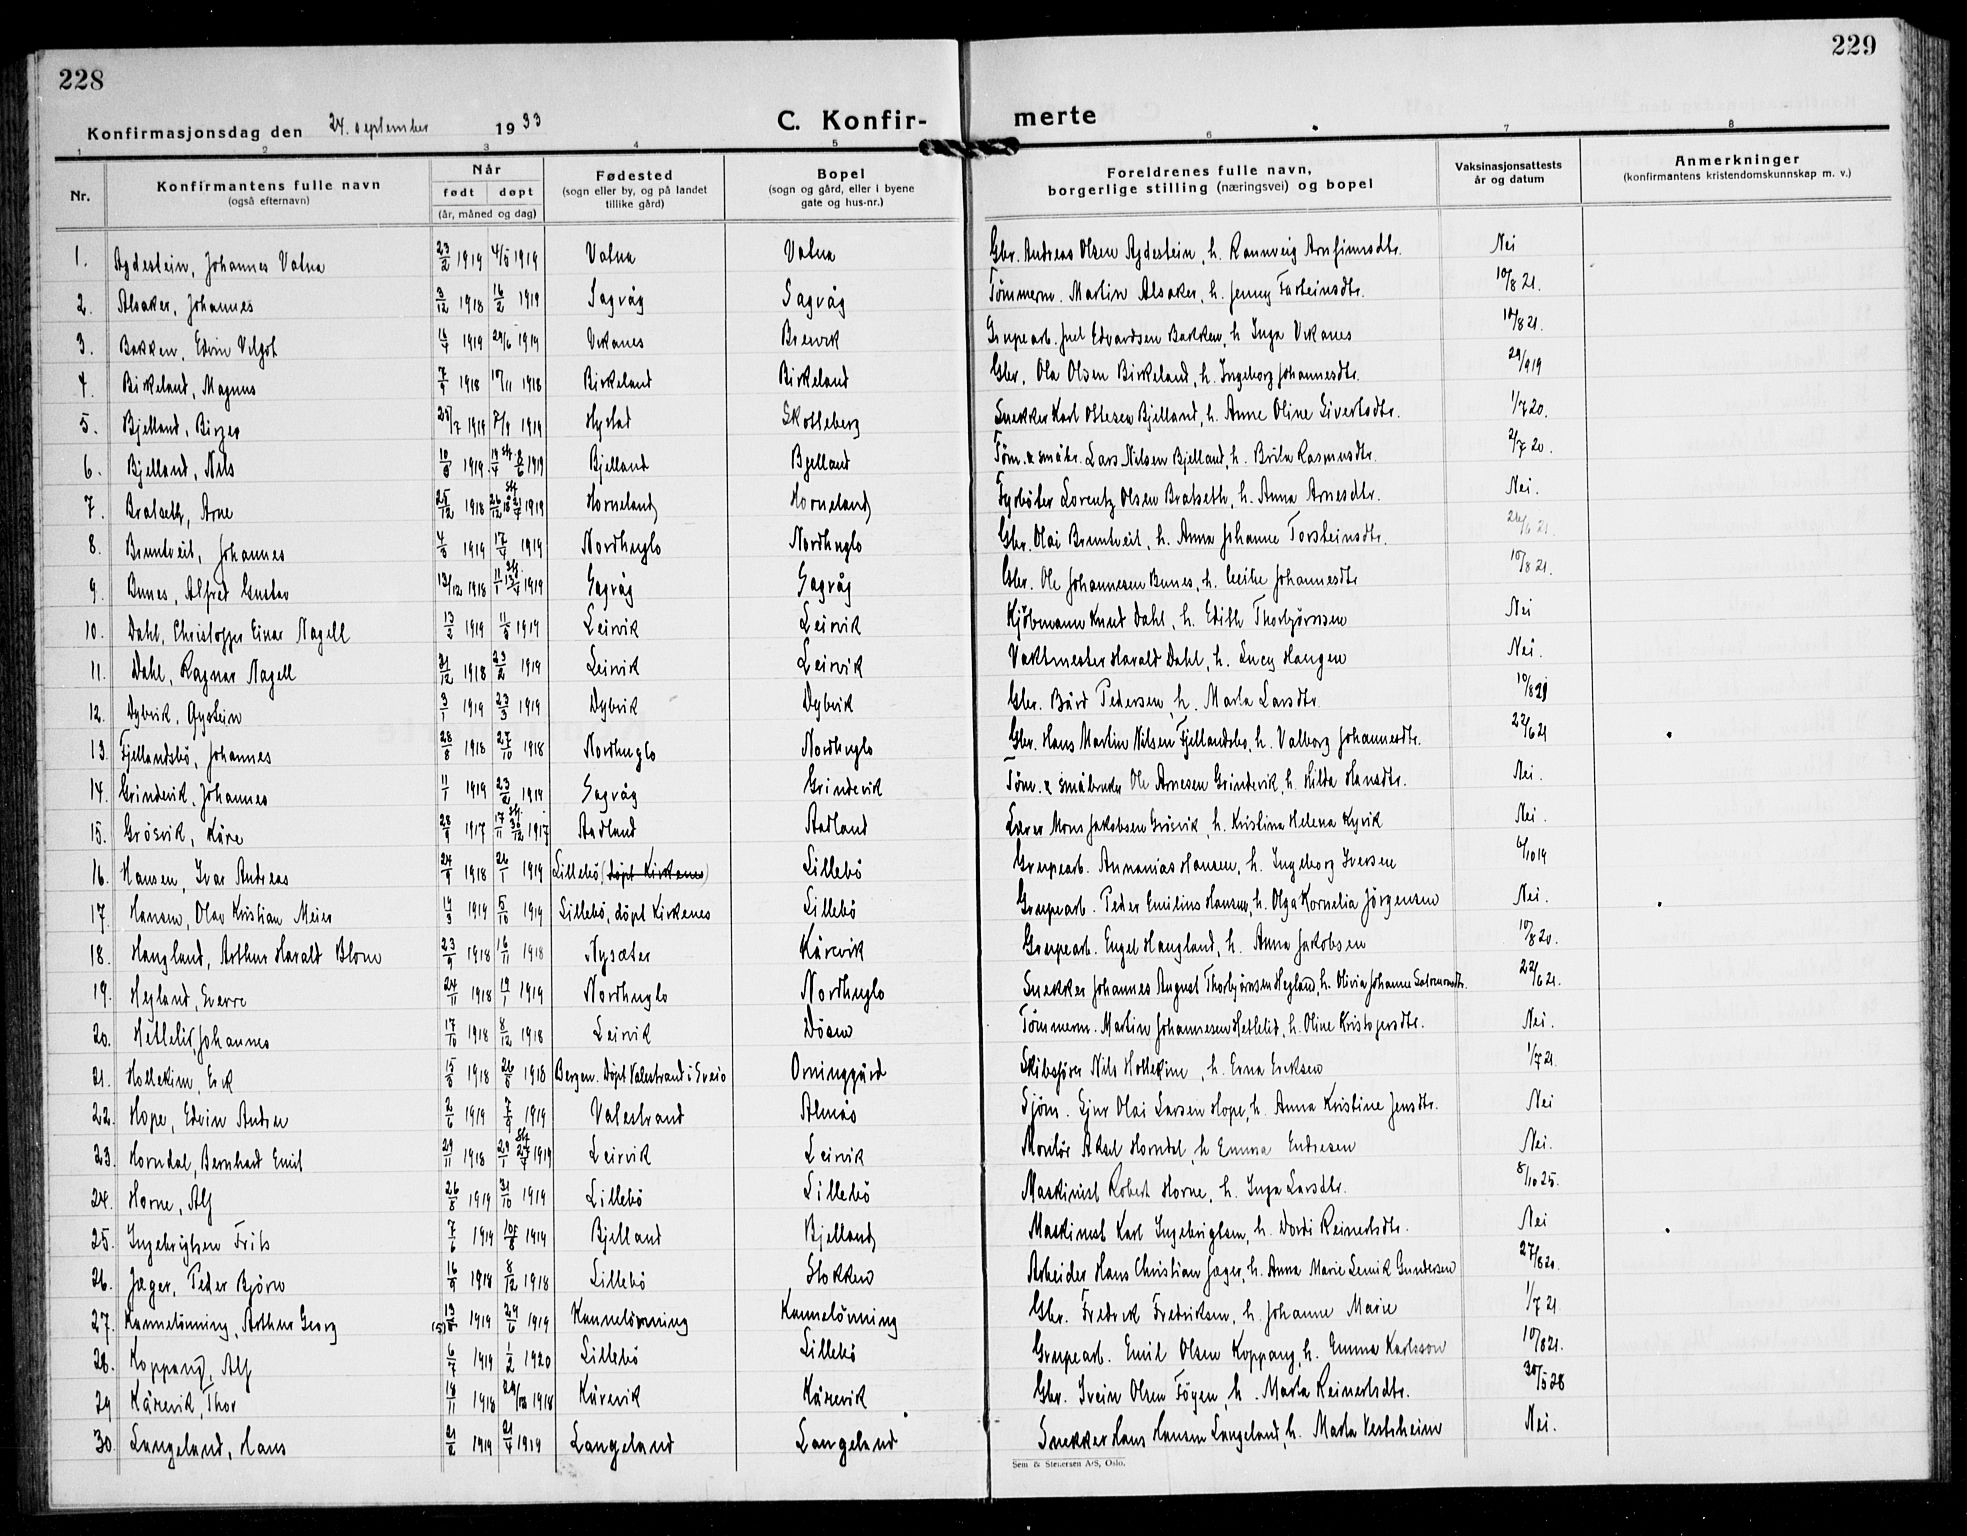 228
229
Konfirmasjonsdag den 24. september 1933
C. Konfirmerte
1 2 3 4 5 6 7 8
Nr. | Konfirmantens fulle navn (også efternavn) | Når født døpt (år, måned og dag) | Fødested (sogn eller by, og på landet tillike gård) | Bopel (sogn og gård, eller i byene gate og hus-nr.) | Foreldrenes fulle navn, borgerlige stilling (næringsvei) og bopel | Vaksinasjonsattests år og datum | Anmerkninger (konfirmantens kristendomskunnskap m. v.)
1. Agdestein, Johannes Vatna 23/2 1919 4/5 1919 Vatna Vatna Gbr. Andreas Olsen Agdestein, h. Rannveig Arnfinnsdtr. Nei
2. Alsaker, Johannes 3/12 1918 16/2 1919 Sagvåg Sagvåg Tømmerm. Martin Alsaker, h. Jenny Farteinsdtr. 10/8 21.
3. Bakken, Edvin Vilgot 1919 29/6 1919 Vikanes Brevik Grupearb. Juel Edvardsen Bakken, h. Inga Vikanes 10/8 21.
4. Birkeland, Magnus 1918 10/11 1918 Birkeland Birkeland Gbr. Ola Olsen Birkeland, h. Ingeborg Johannesdtr. 29/9 19
5. Bjelland, Birger 25/7 1919 7/9 1919 Hystad Skotteberg Snekker Karl Ottesen Bjelland, h. Anne Oline Sivertsdtr. 1/7 20.
6. Bjelland, Nils 1919 19/4 st. 8/6 1919 Bjelland Bjelland Tøm. & småbr. Lars Nilsen Bjelland, h. Brita Rasmusdtr. 2/7 20.
7. Bratseth, Arne 25/12 1918 26/12 18 st. 21/4 1919 Horneland Horneland Fyrbøter Lorentz Olsen Bratseth, h. Anna Arnesdtr. Nei.
8. Bruntveit, Johannes 1919 17/4 1919 Nordhuglo Nordhuglo Gbr. Olai Bruntveit, h. Anna Johanne Torsteinsdtr. 21.
9. Bunes, Alfred Gustav 13/12 1918 11/1 st. 1919 Sagvåg Sagvåg Gbr. Ole Johannesen Bunes, h. Cecilie Johannesdtr 10/8 21.
10. Dahl, Christoffer Einar Nagell 13/2 1919 11/5 1919 Leirvik Leirvik Kjøbmann Knut Dahl, h. Edith Thorbjørnsen Nei
11. Dahl, Ragnar Nagell 21/12 1918 23/2 1919 Leirvik Leirvik Vaktmester Harald Dahl, h. Lucy Haugen Nei.
12. Dybvik, Øystein 3/1 1919 23/3 1919 Dybvik Dybvik Gbr. Bård Pedersen, h. Marta Larsdtr. 10/8 21
13. Fjellandsbø, Johannes 28/8 1918 27/10 1918 Nordhuglo Nordhuglo Gbr. Hans Martin Nilsen Fjellandsbø, h. Valborg Johannesdtr. 22/6 21
14. Grindevik, Johannes 11/1 1919 23/2 1919 Sagvåg Grindevik Tøm. & småbruker Ole Arnesen Grindevik, h. Hilda Hansdtr. Nei.
15. Grösvik, Kåre 28/9 1917 17/11 st. 30/12 1917 Aadland Aadland Lærer Mons Jakobsen Grösvik, h. Kristina Helena Kyvik Nei.
16. Hansen, Ivar Andreas 24/9 1918 26/1 1919 Lillebö (döpt Kirkenes) Lillebö Grupearb. Annanias Hansen, h. Ingeborg Iversen 6/10 19
17. Hansen, Olav Kristian Meier 14/3 1919 5/10 1919 Lillebö, döpt Kirkenes Lillebö Grupearb. Peder Emilius Hansen, h. Olga Kornelia Jörgensen Nei.
18. Haugland, Arthur Harald Blom 23/9 1918 16/11 1918 Nysæter Kårevik Grupearb. Engel Haugland, h. Anna Jakobsen 10/8 20.
19. Hegland, Sverre 24/11 1918 19/1 1919 Nordhuglo Nordhuglo Snekker Johannes August Thorbjørnsen Hegland, h. Olivia Johanne Salomonsdtr. 22/6 21.
20. Hetlelid, Johannes 17/10 1918 8/12 1918 Leirvik Döen Tømmerm. Martin Johannesen Hetlelid, h. Oline Kristofersdtr. Nei.
21. Hollekim, Erik 15/5 1918 26/5 1918 Bergen. Döpt Valestrand i Sveio Orninggård Skibsfører Nils Hollekim, h. Erna Eriksen 1/7 21.
22. Hope, Edvin Andreas 2/6 1919 7/9 1919 Valestrand Almås Sjøm. Gjur Olai Larsen Hope, h. Anna Kristine Jensdtr. Nei
23. Horndal, Bernhard Emil 29/11 1918 29/1 st. 27/4 1919 Leirvik Leirvik Montør Aksel Horndal, h. Emma Endresen Nei.
24. Horne, Alf 26/8 1919 31/10 1919 Lillebö Lillebö Maskinist Robert Horne, h. Inga Larsdtr. 8/10 25.
25. Ingebrigtsen Frits 7/6 1919 10/8 1919 Bjelland Bjelland Maskinist Karl Ingebrigtsen, h. Dordi Reinertsdtr. Nei
26. Jæger, Peder Bjørn 16/9 1918 8/12 1918 Lillebö Stokken Arbeider Hans Christian Jæger, h. Anna Marie Lervik Gundersen 27/8 20.
27. Kannelönning, Arthur Georg (5) 13/ 1919 29/6 1919 Kannelönning Kannelönning Gbr. Fredrik Fredriksen, h. Johanne Marie 1/7 21.
28. Koppang, Alf 6/7 1919 1/2 1920 Lillebö Lillebö Grupearb. Emil Olsen Koppang, h. Emma Karlsson 10/8 21.
29 Kårevik, Thor 18/11 1918 29/12 1918 Kårevik Kårevik Gbr. Svein Olsen Föyen, h. Marta Reinertsdtr. 30/5 28
30. Langeland, Hans 21/2 1919 21/4 1919 Langeland Langeland Snekker Hans Hansen Langeland, h. Marta Vestsheim Nei.
Sem & Stenersen A/S, Oslo.